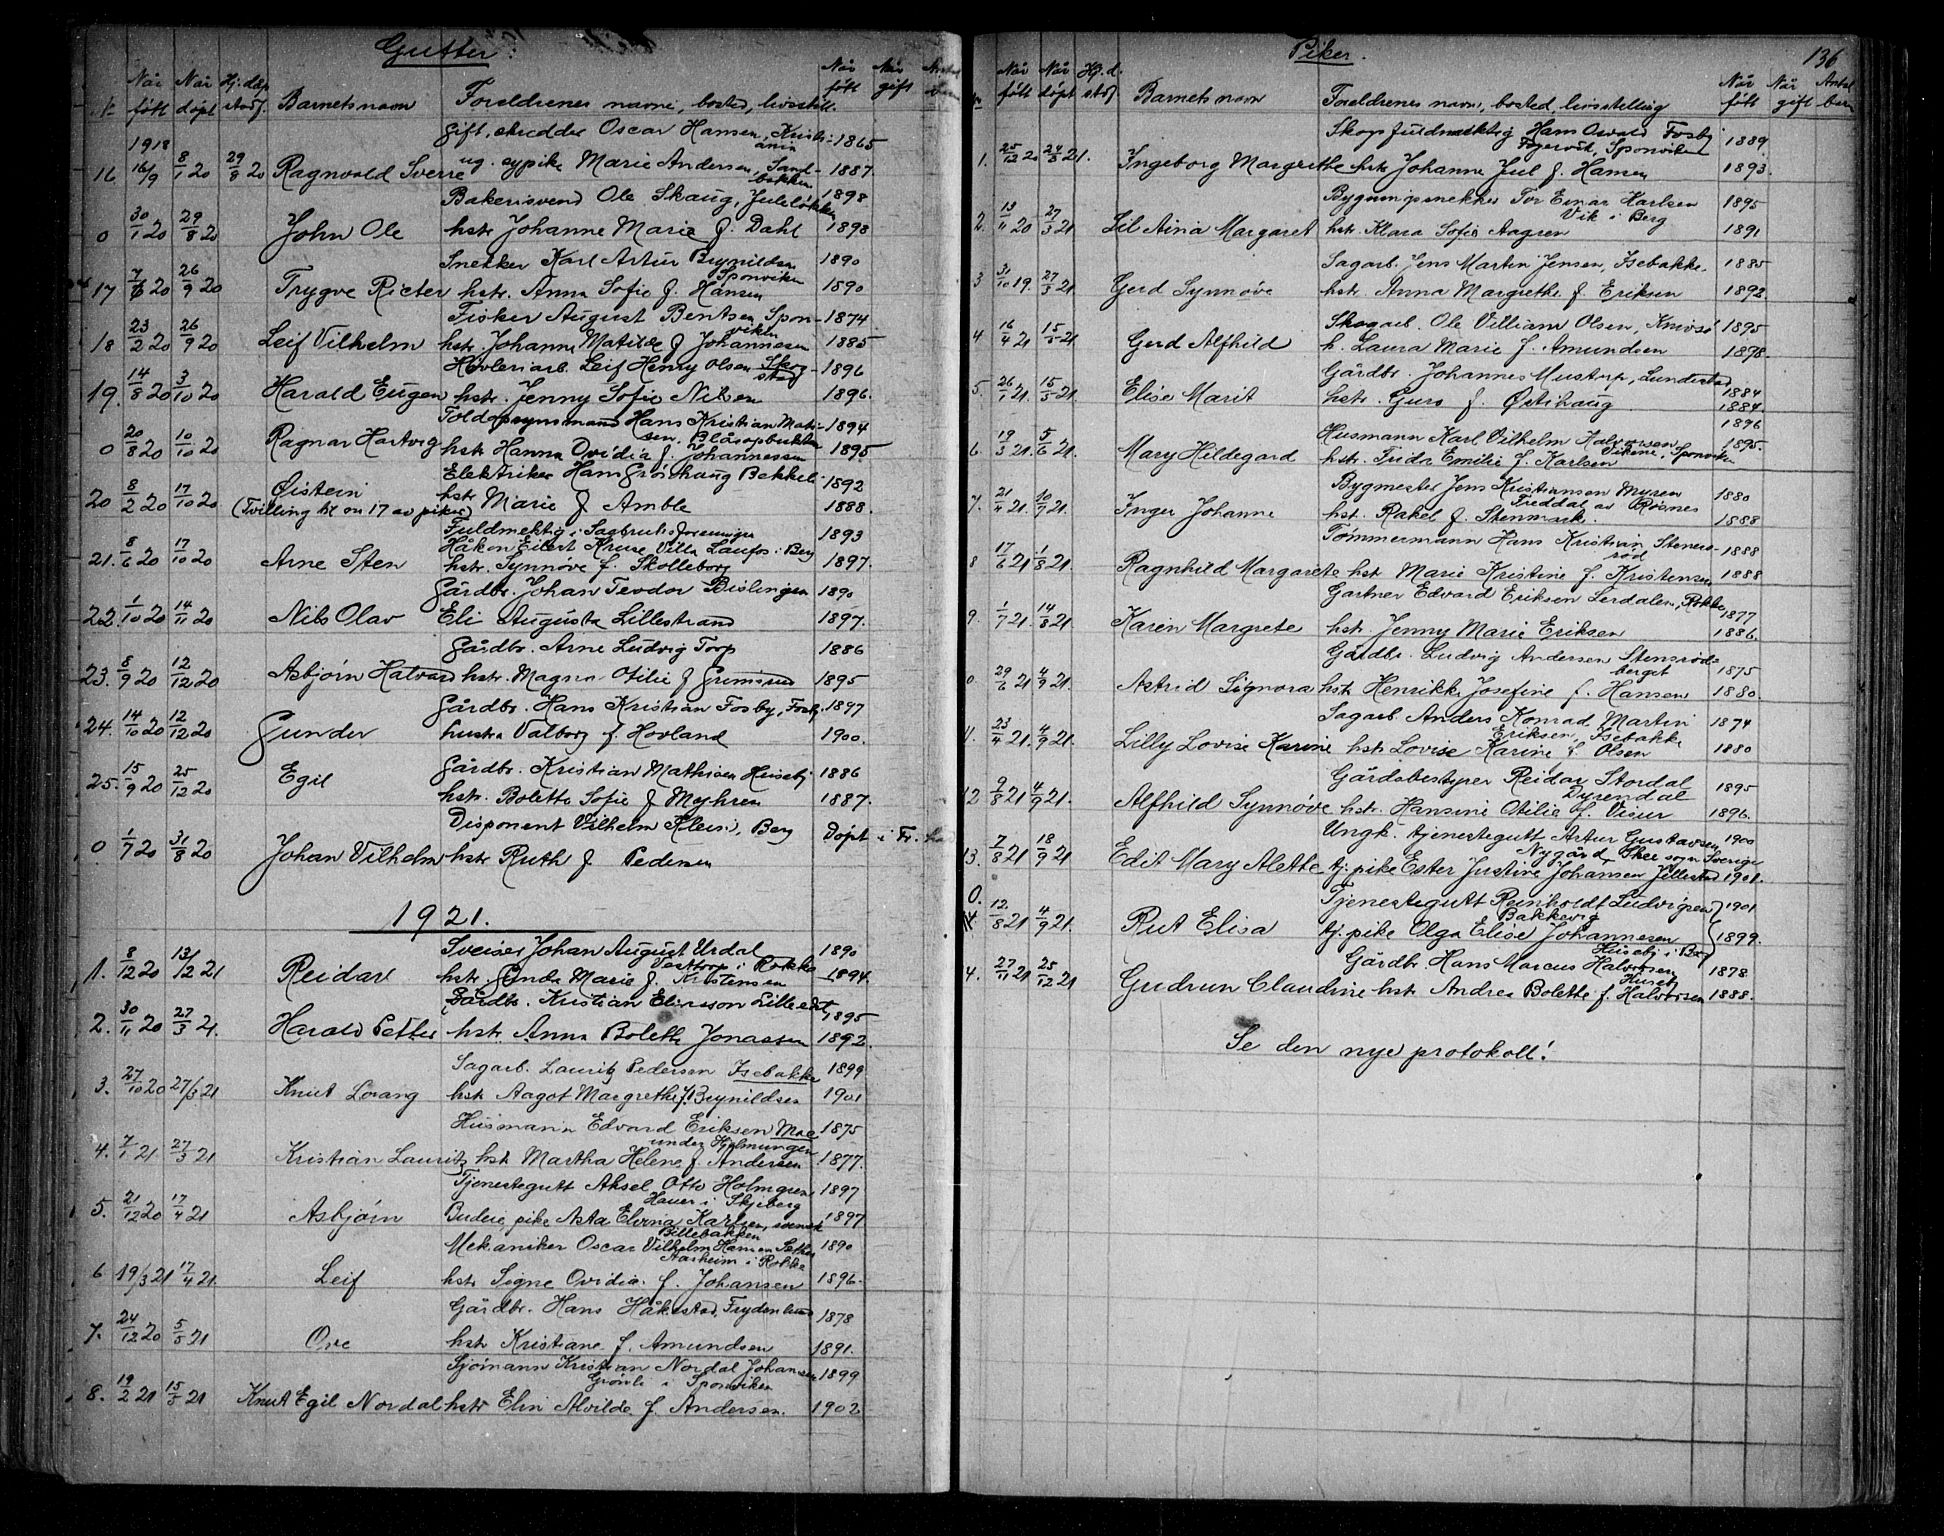 Gutter.
Når født Når døpt Hj.døp stadf. Barnets navn Foreldrenes navn, bosted, livsstill. Når født Når gift
1918
gift, skredder Oscar Hansen, Kristiania 1865
16 16/9 8/1 20 29/8 20 Ragnvald Sverre ug. sypike Marie Andersen, Sandbakken 1887.
Bakerisvend Ole Skaug, Juleløkken 1898
0 30/1 20 29/8 20 John Ole hstr. Johanne Marie f. Dahl 1898
Snekker Karl Artur Brynildsen Sponviken 1890
17 7/6 20 26/9 20 Trygve Rieter hstr. Anna Sofie f. Hansen 1890
Fisker August Bentsen Sponviken 1874
18 23/2 20 26/9 20 Leif Vilhelm hstr. Johanne Matilde f. Johannesen 1885
Høvleriarb. Leif Henry Olsen 1896
19. 14/8 20 3/10 20 Harald Eugen hstr. Jenny Sofie Nilsen 1896.
Toldopsynsmand Hans Kristian Matsen, Blåsopbukten 1894
0 20/8 20 10/10 20 Ragnar Hartvig hstr Hanna Ovidia f. Johannessen 1895
Elektriker Hans Grönhaug Bekkeli 1892
20 8/2 20 17/10 20 Øistein (Tvilling til nr 17 av piker) hstr Marie f Amble 1888.
Fuldmektig i Sagbruksforeningen 1893
Håkon Eilert Kruse Villa Laufos i Berg
21. 8/6 20 17/10 20 Arne Sten hstr. Synnøve f. Skolleborg 1897.
Gårdbr. Johan Teodor Bislingen 1890
22. 1/10 20 14/11 20 Nils Olav Eli Augusta Lillestrand 1897.
Gårdbr. Arne Ludvig Torp 1886
23. 8/9 20 12/12 20 Asbjørn Halvard hstr. Magna Otilie f Grimsrud 1895
Gårdbr. Hans Kristian Fosby, Fosby 1897
24. 14/10 20 12/12 20 Gunder hustru Valborg f. Hovland 1900.
Gårdbr. Kristian Mathisen Huseby 1886
25. 15/9 20 25/12 20 Egil hstr. Bolette Sofie f Myhren 1887.
Disponent Vilhelm Klein, Berg Døpt i Fr.
0 1/7 20 31/8 20 Johan Vilhelm hstr Ruth f Pedersen
1921.
Sveiser Johan August Urdal Vesttorp i Rokke 1890
1. 8/12 20 13/12 21 Reidar hstr. Gunda Marie f. Kristensen 1894.
Gårdbr. Kristian Eliasson Lilleedet 1895
2. 30/11 20 27/3 21. Harald Petter hstr. Anna Bolette Jonassen 1892.
Sagarb. Lauritz Pedersen Isebakke 1899
3. 27/10 20 27/3 21 Knut Lorang hstr Aagot Margrethe f. Brynildsen 1901
Husmann Edvard Eriksen Moe under Hjelmungen 1875
4. 7/1 21 27/3 21 Kristian Lauritz hstr Martha Helene f. Andersen 1877.
Tjenestegutt Aksel Otto Holmgren Hauer i Skjeberg 1897
5. 21/12 20 17/4 21 Asbjørn Budeie, pike Asta Elvina Karlsen, svensk Billebakken 1897
Mekaniker Oscar Vilhelm Hansen Sæther Aasheim i Rokke 1890
6 19/3 21 17/4 21. Leif hstr Signe Ovidia f. Johansen 1896
Gårdbr. Hans Håkestad, Frydenlund 1878
7. 24/12 20 5/5 21 Ove hstr Kristiane f. Amundsen 1891.
Sjømann Kristian Nordal Johansen Grønli i Sponviken 1899
8. 19/2 21 15/5 21 Knut Egil Nordal hstr Elin Alvilde f Andersen. 1902
Piker.
136
Når født Når døpt Hj.d. stadf Barnets navn Foreldrenes navn, bosted, livsstilling Når født Når gift Antal barn
Skogsfuldmektig Hans Osvald Fosby Fagervik, Sponviken 1889
1. 25/12 20 24/3 21. Ingeborg Margrethe hstr Johanne Jul f. Hansen 1893.
Bygningssnekker Tor Einar Karlsen Vik i Berg 1895
2. 13/11 20 27/3 21 Lil Aina Margaret hstr. Klara Sofie Aagren 1891
Sagarb. Jens Martin Jensen, Isebakke. 1885
3 31/10 19. 27/3 21. Gerd Synnøve hstr. Anna Margrethe f. Eriksen 1892
Skogarb. Ole Villiam Olsen, Knivsø 1895
4 16/4 21 15/5 21 Gerd Alfhild h. Laura Marie f. Amundsen 1898.
Gårdbr. Johannes Mustorp, Lundestad 1884
5. 26/1 21. 15/5 21. Elise Marit hstr. Guro f. Østihaug 1884.
Husmann Karl Vilhelm Halvorsen Vikene, Sponviken 1896
6. 19/3 21. 5/6 21. Mary Hildegard hstr. Frida Emilie f. Karlsen 1895.
Bygmester Jens Kristiansen Myren Freddal av Røsnes 1880
7. 21/4 21. 10/7 21. Inger Johanne hst. Rakel f. Stenmark. 1888
Tømmermann Hans Kristian Stensrød 1888
8 17/6 21 1/8 21. Ragnhild Margarete hst Marie Kristine f. Kristensen 1888
Gartner Edvard Eriksen Lerdalen, Rokke 1877
9. 1/7 21. 14/8 21. Karin Margrete hstr. Jenny Marie Eriksen 1886
Gårdbr. Ludvig Andersen Stensrødberget 1875
0. 29/6 21 4/9 21. Astrid Signora hstr Henrikke Josefine f. Hansen 1880.
Sagarb Anders Konrad Martin Eriksen, Isebakke 1874
11. 23/4 21. 4/9 21. Lilly Lovise Karine hstr Lovise Karine f. Olsen 1880
Gårdsbestyrer Reidar Stordal Dyrendal 1895
12 9/8 21 4/9 21. Alfhild Synnøve hstr. Hansine Otilie f. Visur 1896.
Ungk. tjenestegutt Artur Gustavsen Nygård, Skee sogn Sverige 1900
13. 7/8 21 18/9 21 Edit Mary Alette tj. pike Ester Justine Johansen Jillestad 1901.
0. Tjenestegutt Reinholdt Ludvigsen Bakkevig 1901
12/8 21 4/9 21. Rut Elisa tj. pike Olga Elise Johannesen 1899.
Gårdbr. Hans Marcus Halvorsen Huseby i Berg 1878
4. 27/11 21 25/12 21 Gudrun Claudine hstr Andrea Bolette f. Halvorsen 1888.
Se den nye protokoll!